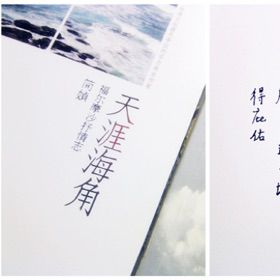 天涯海角
福尔摩沙抒情志
简媜
得庇佑